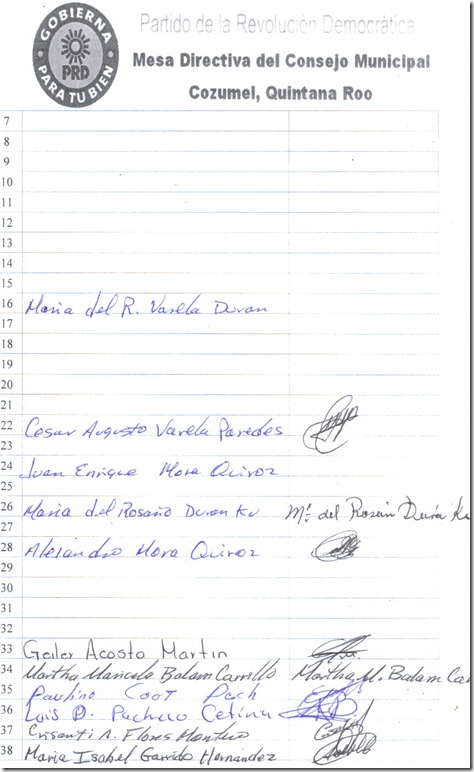 GOBIERNA
PRD
PARA TU BIEN
Partido de la Revolución Democrática
Mesa Directiva del Consejo Municipal
Cozumel, Quintana Roo
7
8
9
10
11
12
13
14
15
16 Maria del R. Varela Duran
17
18
19
20
21
22 Cesar Augusto Varela Paredes
23
24 Juan Enrique Mora Quiroz
25
26 Maria del Rosario Duran Ku Ma. del Rosario Durán Ku
27
28 Alejandro Mora Quiroz
29
30
31
32
33 Geiler Acosto Martin
34 Martha Maricela Balam Carrillo Martha M. Balam Ca
35 Paulino Coot Pech
36 Luis D. Pacheco Cetina
37 Crisanti A. Flores Montero
38 Maria Isabel Garrido Hernandez